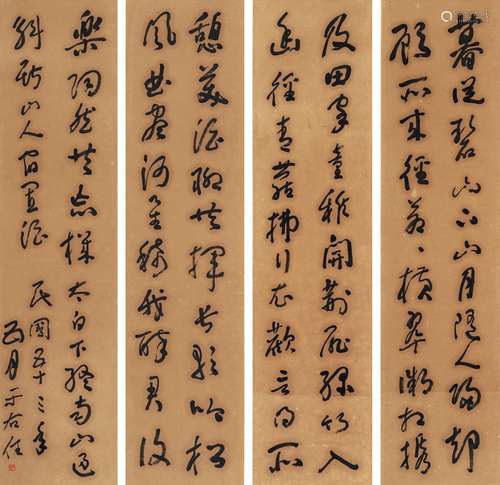 暮從碧山下山月隨人歸卻
顧所來徑蒼蒼橫翠微相攜
及田家童稚開荊扉綠竹入
幽徑青蘿拂行衣歡言得所
憩美酒聊共揮長歌吟松
風曲盡河星稀我醉君復
樂陶然共忘機太白下終南山過
斛斯山人宿置酒 民國五十三年
月于右任